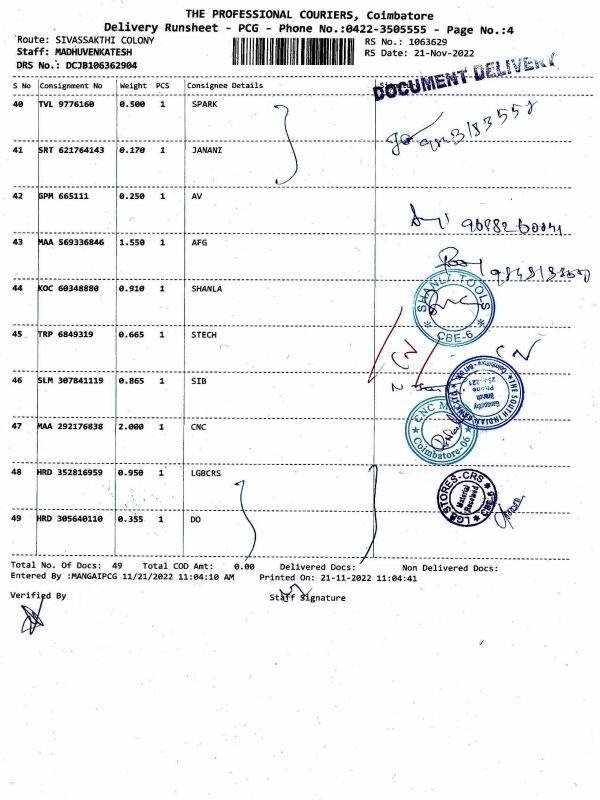 THE PROFESSIONAL COURIERS, Coimbatore
Delivery Runsheet - PCG - Phone No.:0422-3505555 - Page No.:4
Route: SIVASSAKTHI COLONY RS No.: 1063629
Staff: MADHUVENKATESH RS Date: 21-Nov-2022
DRS No.: DCJB106362904
DOCUMENT DELIVERY
S No Consignment No Weight PCS Consignee Details
40 TVL 9776160 0.500 1 SPARK
41 SRT 621764143 0.170 1 JANANI
42 GPM 665111 0.250 1 AV
43 MAA 569336846 1.550 1 AFG
44 KOC 60348880 0.910 1 SHANLA
SHANLA TOOLS
* CBE-6 *
45 TRP 6849319 0.665 1 STECH
CN
CN
46 SLM 307841119 0.865 1 SIB
THE SOUTH INDIAN BANK LTD
Ganapathy
Branch
Phone
47 MAA 292176838 2.000 1 CNC
CNC
Coimbatore-06
48 HRD 352816959 0.950 1 LGBCRS
LGB STORES-CRS
Material
Received
CBE-6
49 HRD 305640110 0.355 1 DO
Total No. Of Docs: 49 Total COD Amt: 0.00 Delivered Docs: Non Delivered Docs:
Entered By :MANGAIPCG 11/21/2022 11:04:10 AM Printed On: 21-11-2022 11:04:41
Verified By Staff Signature